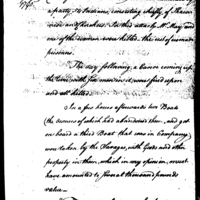 1791
a party of Indians, consisting chiefly of Shawa-
nese and Cherokees. In this attack Mr. May, and
one of the women were killed, the rest were made
prisoners.
The day following, a Canoe coming up
the River with five men in it, were fired upon
and all killed.
In a few hours afterwards two Boats
(the owners of which had abandoned them, and got
on board a third Boat that was in Company)
were taken by the Savages, with Goods and other
property in them, which in my opinion, must
have amounted to several thousand pounds
value.